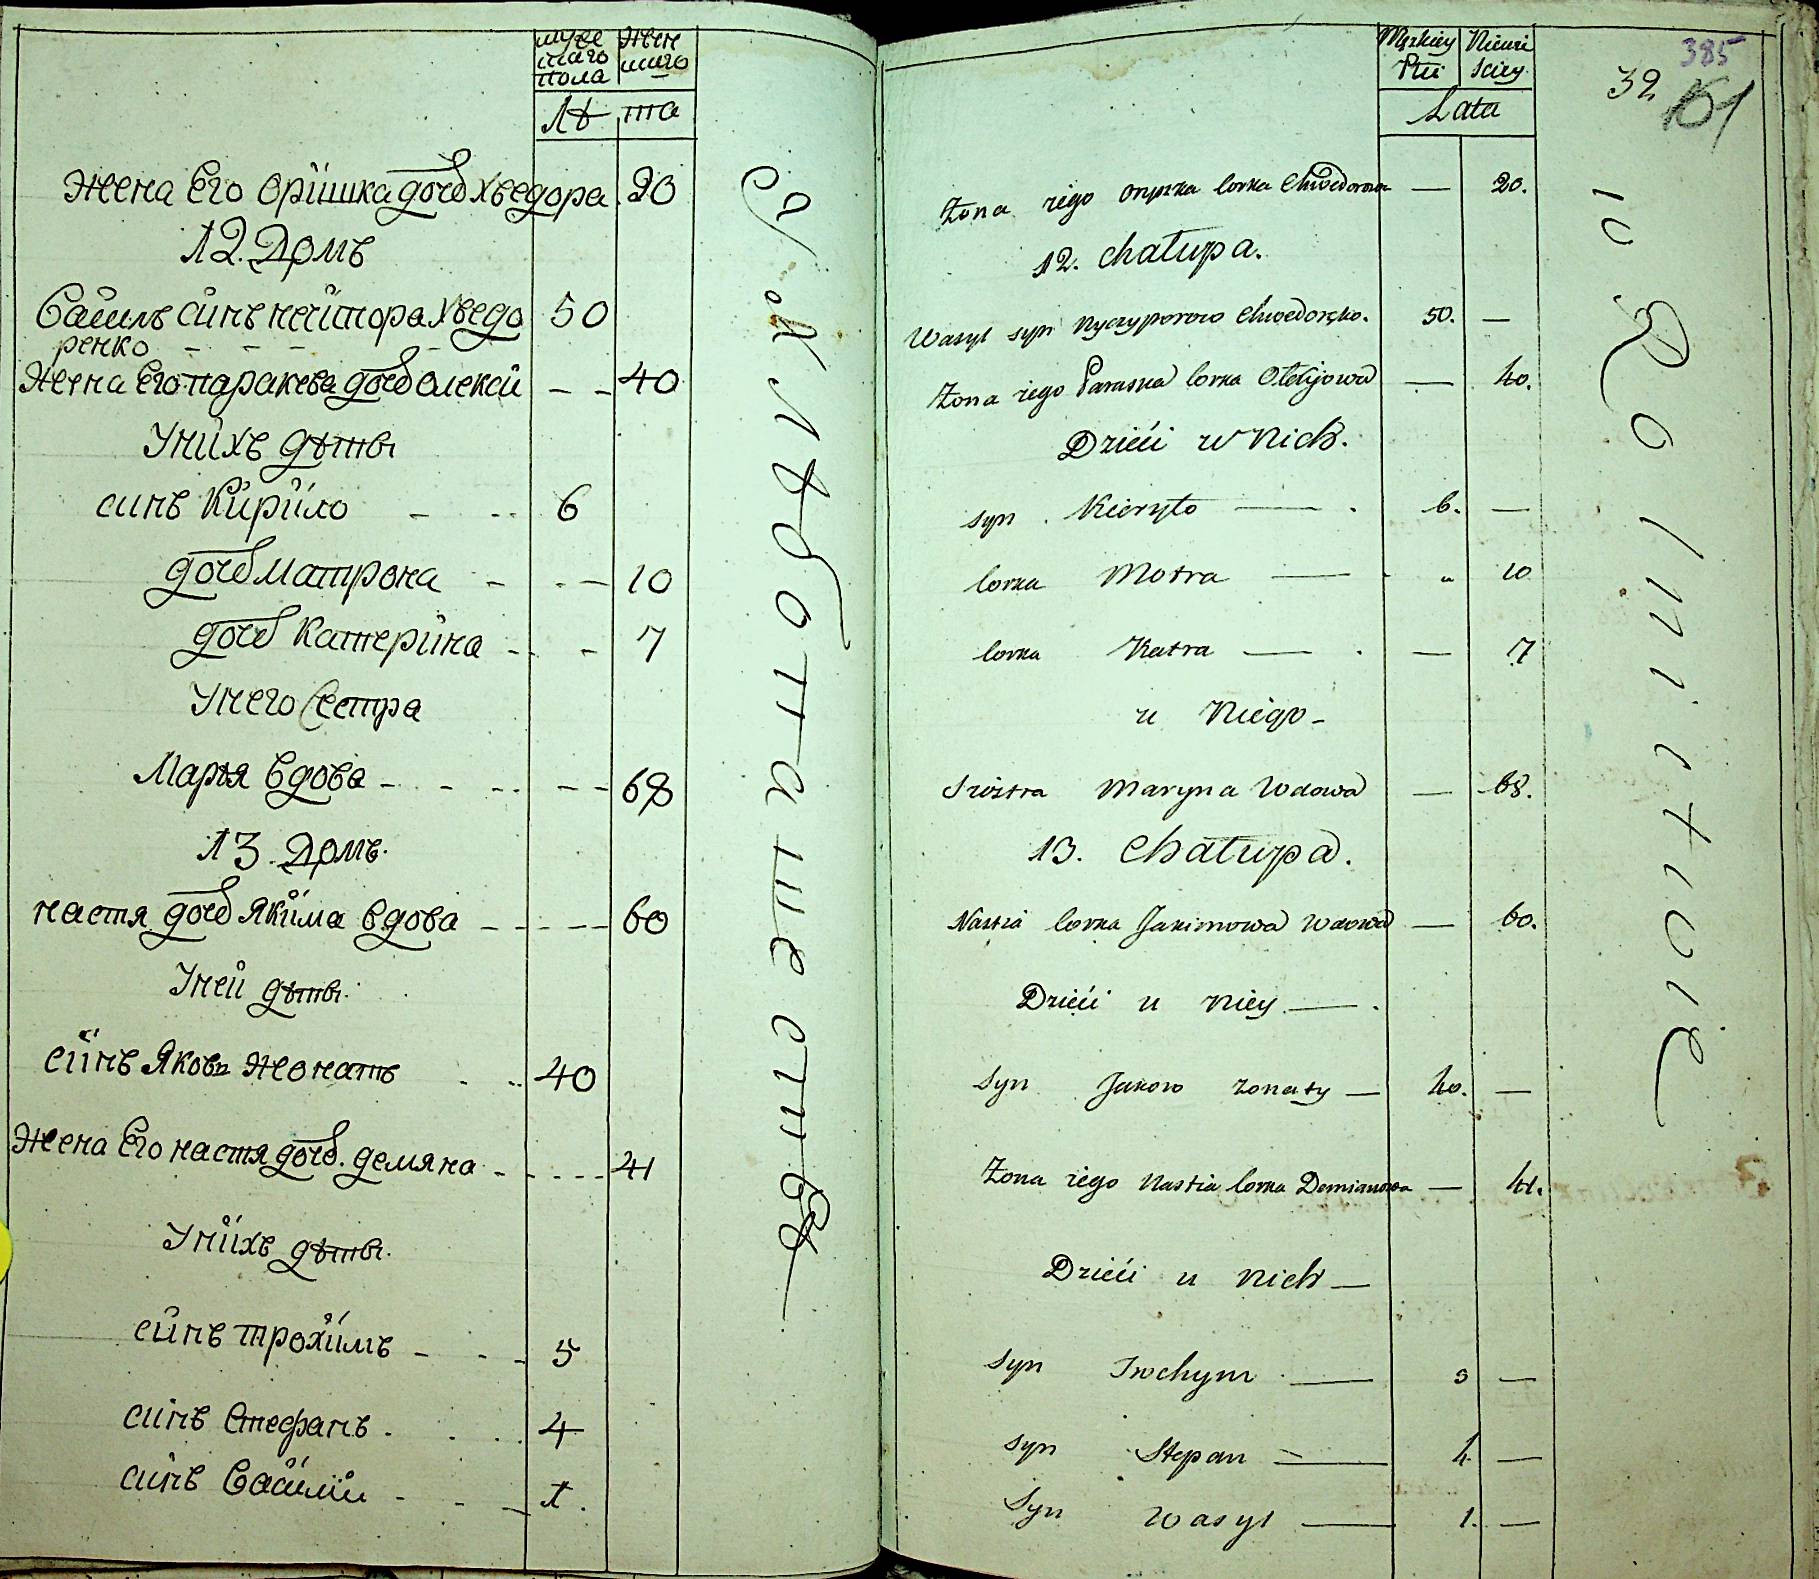 муже
скаго
пола
жен
скаго
Лѣ та
Жена Его Орiшка дочь Хведора 20
12. Домъ
Василь синъ нечипора Хведо 50
ренко
Жена Его парасква дочь Олексiй — — 40
Унiхъ дѣты
синъ Кирило 6
дочь Матрона 10
дочь Катерiна 7
Унего Сестра
Марья вдова 68
13. Домъ.
настя дочь Якiма вдова 60
Уней дѣты.
сiнъ Яковъ жонатъ 40
Жена Его настя дочь. демяна 41
Унiхъ дѣты.
сiнъ трохiмъ 5
синъ Стефанъ. 4
синъ Васiлiй 1.
Męzkiey Płci
Niewi sciey
Lata
385
32
151
Zona iego Oryszka corka Chwedorowa — 20.
12. Chałupa.
Wasyl syn Nyczyporow Chwedoręko. 50. —
Zona iego Paraska corka Olexijowa — 40.
Dzieći u Nich.
syn Kieryło — 6. —
corka Motra — " 10
corka Katra — — 7
u Niego -
Siostra Maryna Wdowa — 68.
13. Chałupa.
Nastia corka Jakimowa Wdowa — 60.
Dzieći u niey —.
Syn Jakow zonaty — 40. —
Zona iego Nastia corka Demianowa — 41.
Dzieći u nich —
Syn Trochym — 5 —
syn Stepan — 4 —
Syn Wasyl — 1. —